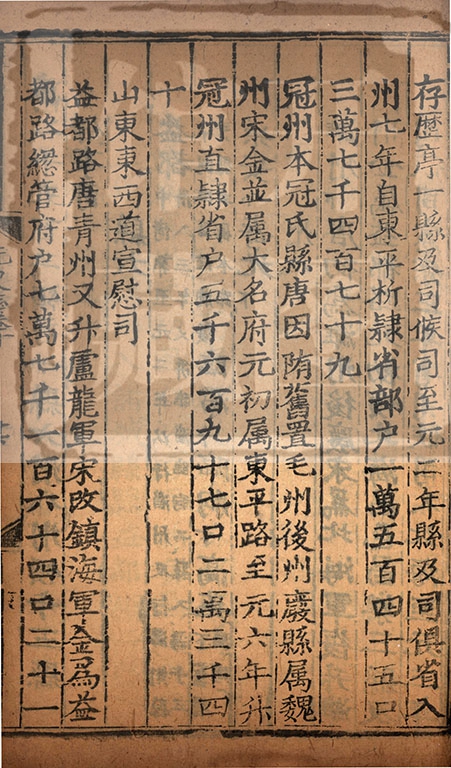 存歷亭一縣及司候司至元二年縣及司俱省入
州七年自東平析隷省部户一萬五百四十五口
三萬七千四百七十九
冠州本冠氏縣唐因隋舊置毛州後州廢縣属魏
州宋金並属大名府元初属東平路至元六年升
冠州直隷省户五千六百九十七口二萬三千四
十
山東東西道宣慰司
益都路唐青州又升盧龍軍宋改鎮海軍金為益
都路緫管府户七萬七千一百六十四口二十一